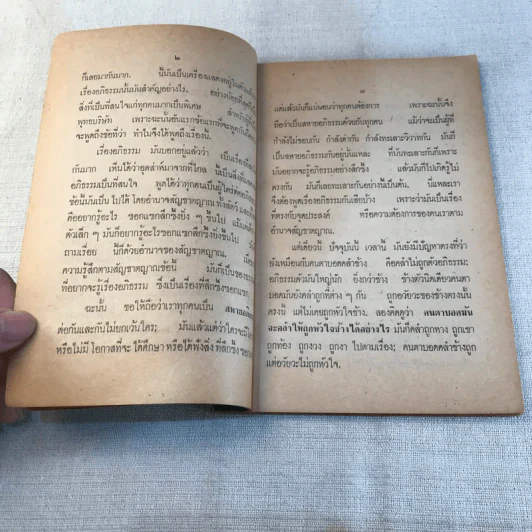 ๒
ก็เลยมากันมาก. นี้มันเป็นเครื่องแสดงอยู่ในตัวแล้ว
เรื่องอภิธรรมนั้นมันสำคัญอย่างไร. อย่างน้อยที่สุด
สิ่งที่เป็นที่สนใจแก่ทุกคนมากเป็นพิเศษ สำหรับผู้
พุทธบริษัท เพราะฉะนั้นอันแรกข้อแรกที่จะพูดกันก็
จะพูดถึงข้อที่ว่า ทำไมจึงได้พูดถึงเรื่องนี้.
เรื่องอภิธรรม มันบอกอยู่แล้วว่า เป็นเรื่องที่
กันมาก เห็นได้ว่าอุตส่าห์มาจากที่ไกล นี่เป็นสิ่งที่
อภิธรรมเป็นที่สนใจ พูดได้ว่าทุกคนเป็นผู้ใคร่ต่ออภิธรรม
ข้อนี้มันเป็น ไปได้ โดยอำนาจสัญชาตญาณ ทั้งสัตว์
คืออยากรู้อะไร ซอกแซกลึกซึ้งยิ่ง ๆ ขึ้นไป แม้แต่
ตัวเล็ก ๆ มันก็อยากรู้อะไรซอกแซกลึกซึ้งยิ่งขึ้นไป
ถามเรื่อย นี้ก็ด้วยอำนาจของสัญชาตญาณ. เมื่อ
ความรู้สึกตามสัญชาตญาณข้อนี้ มันก็เป็นของ
ที่อยากจะรู้เรื่องอภิธรรม ซึ่งเป็นเรื่องที่ลึกซึ้งซอกแซก.
ฉะนั้น ขอให้ถือว่าเราทุกคนเป็น สหาย
ต่อกันและกันไม่ยกเว้นใคร; มันแล้วแต่ว่าใครจะมี
หรือไม่มี โอกาสที่จะ ได้ศึกษา หรือได้ฟังสิ่ง ที่ลึกซึ้ง
๓
แต่แล้วมันก็แน่นอนว่าทุกคนต้องการ เพราะฉะนั้นจึง
ถือว่าเป็นสหายอภิธรรมด้วยกันทุกคน แม้ว่าจะเป็นผู้ที่
กำลังไม่ชอบกัน กำลังด่ากัน กำลังทะเลาะวิวาทกัน มันก็
เป็นสหายอภิธรรมกันอยู่นั่นแหละ ที่มันทะเลาะกันก็เพราะ
มันอยากจะรู้อภิธรรมอย่างลึกซึ้ง แล้วมันก็ไปเกิดรู้ไม่
ตรงกัน มันก็เลยทะเลาะกันอย่างนี้เป็นต้น. นี่แหละเรา
จึงต้องพูดเรื่องอภิธรรมกันเสียบ้าง เพราะว่ามันเป็นเรื่อง
ที่ตรงกับจุดประสงค์ หรือความต้องการของคนเราตาม
อำนาจสัญชาตญาณ.
แต่เดี๋ยวนี้ ปัจจุบันนี้ เวลานี้ มันยังมีปัญหาตรงที่ว่า
ยังเหมือนกับคนตาบอดคลำช้าง คือคลำไม่ถูกตัวอภิธรรม;
อภิธรรมตัวมันใหญ่นัก ยิ่งกว่าช้าง ช้างตัวนิดเดียวคนตา
บอดมันยังคลำถูกที่ต่าง ๆ กัน ถูกอวัยวะของช้างตรงนั้น
ตรงนี้ แต่ไม่เคยถูกหัวใจช้าง. ลองคิดดูว่า คนตาบอดมัน
จะคลำให้ถูกหัวใจช้างได้อย่างไร มันก็คลำถูกหาง ถูกเขา
ถูกท้อง ถูกงวง ถูกงา ไปตามเรื่อง; คนตาบอดคลำช้างถูก
แต่อวัยวะไม่ถูกหัวใจ.